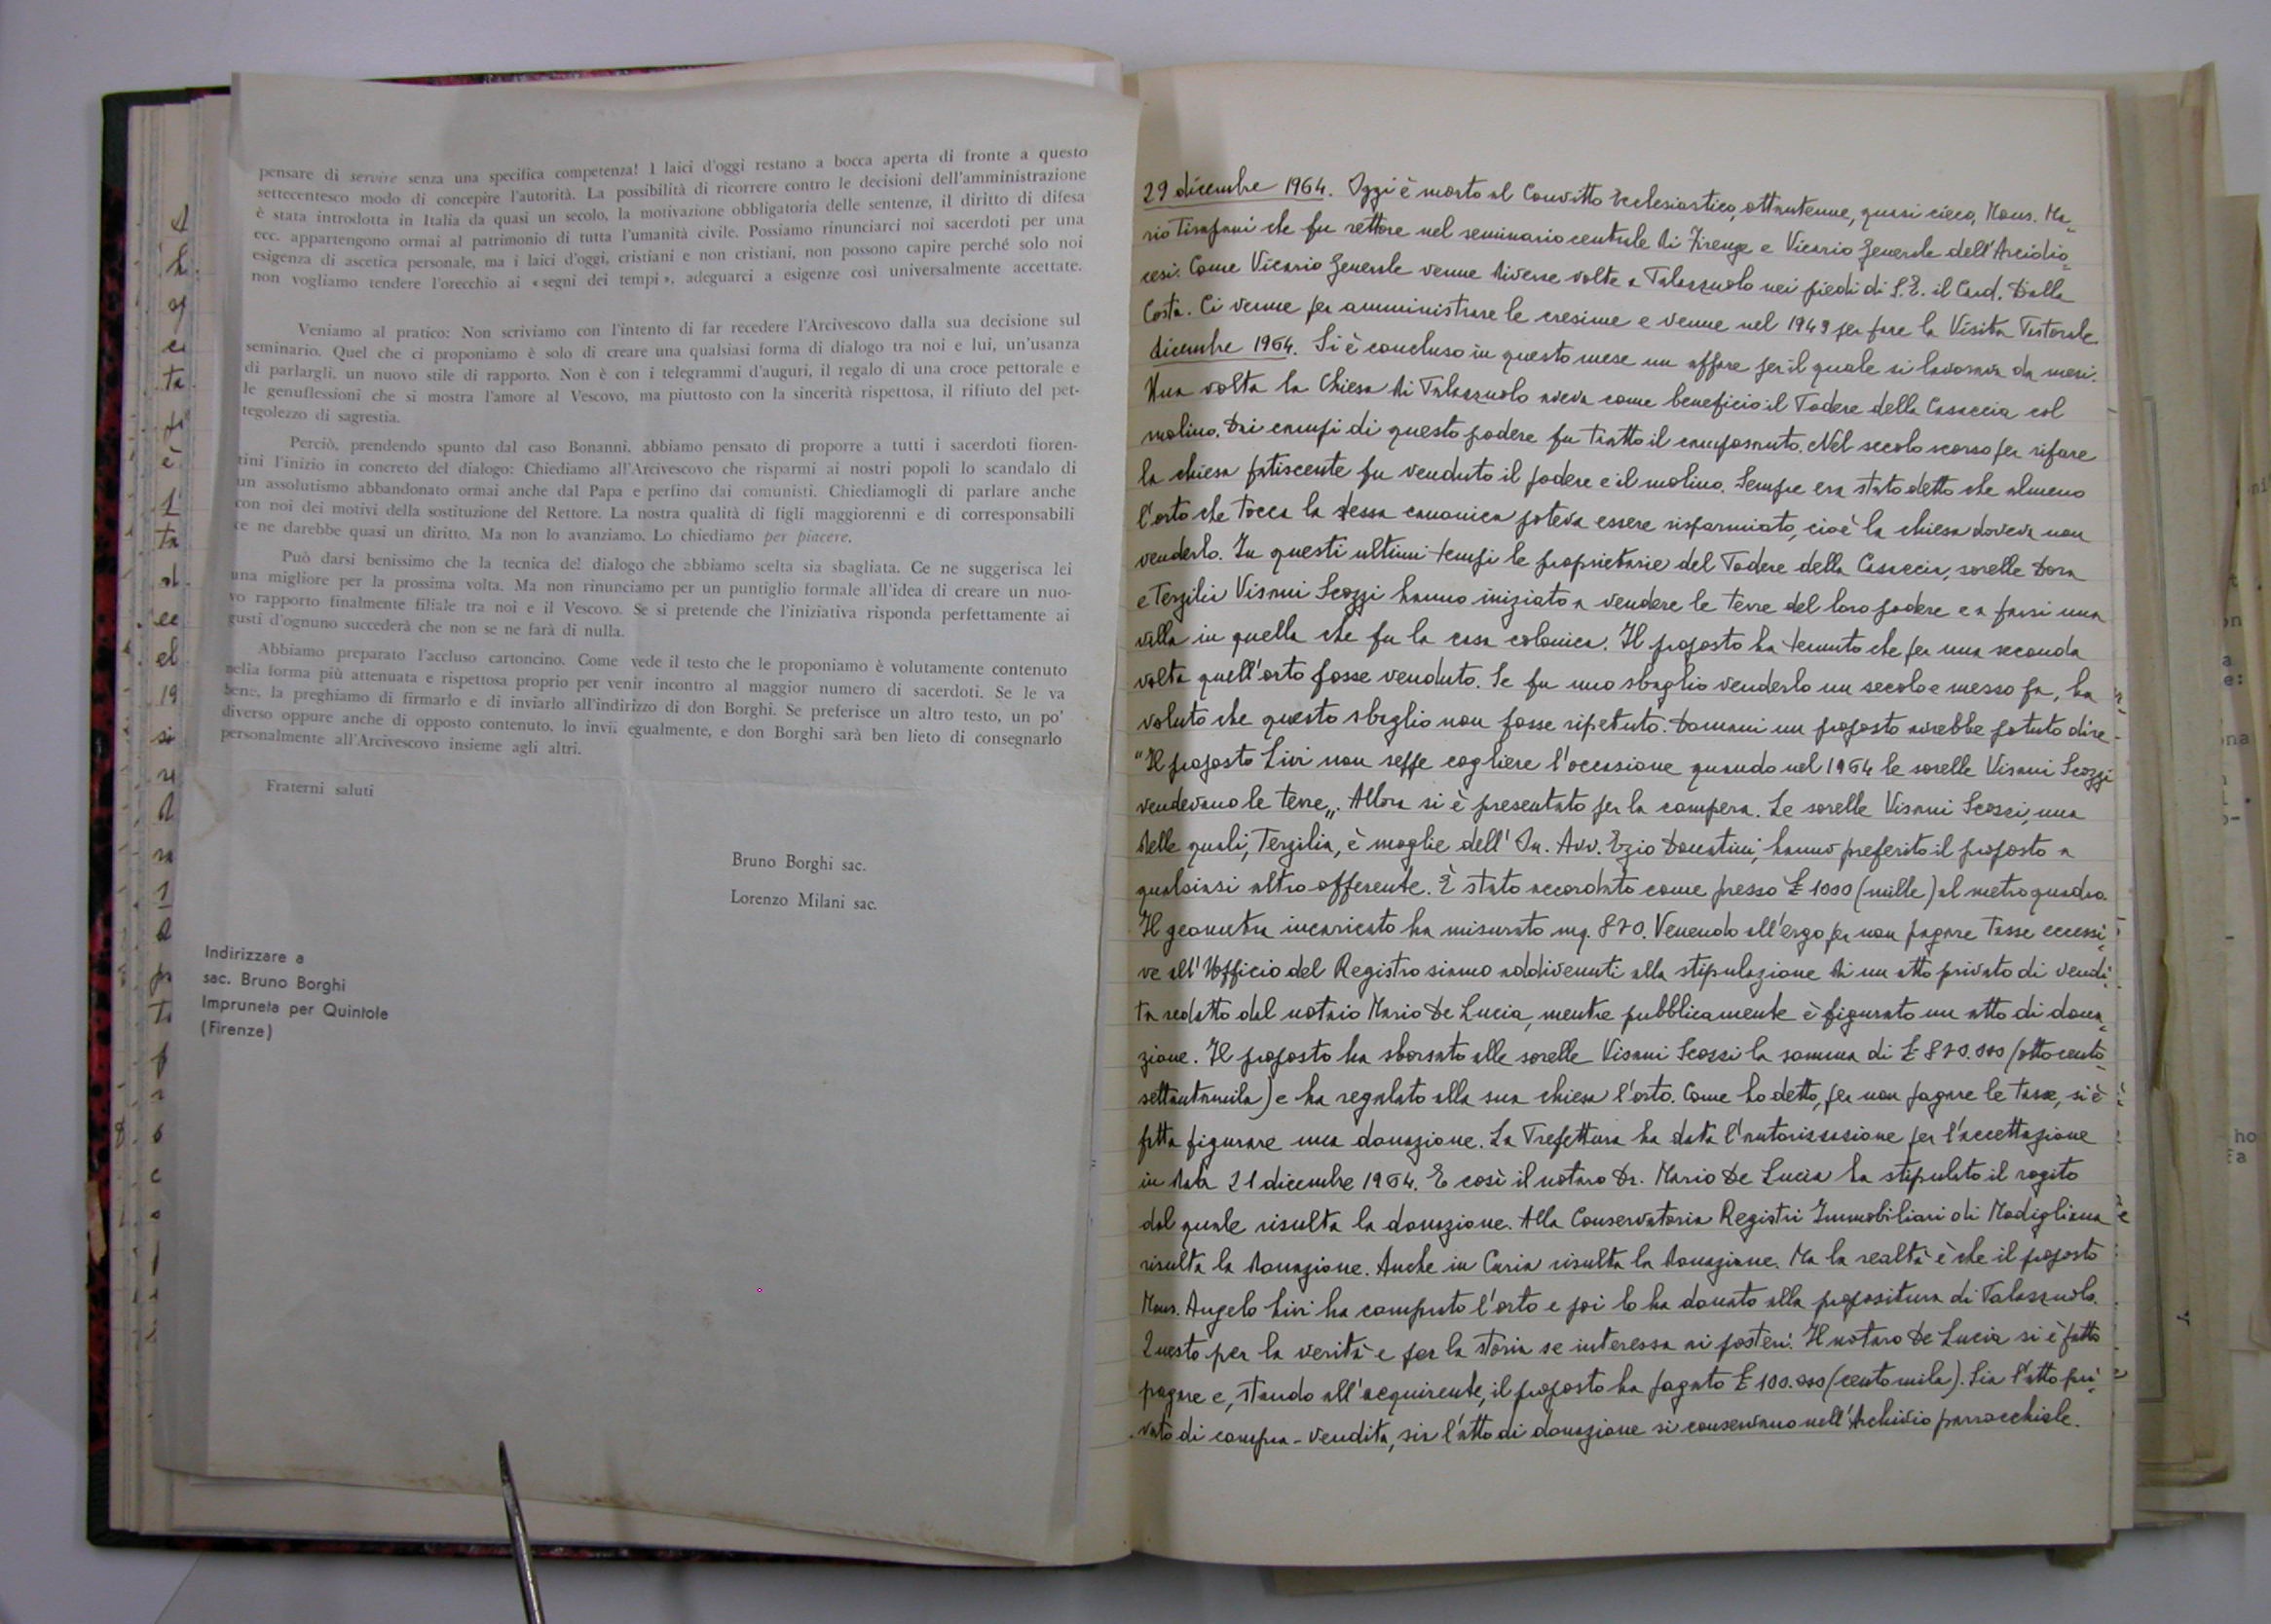 pensare di servire senza una specifica competenza! I laici d'oggi restano a bocca aperta di fronte a questo
settecentesco modo di concepire l'autorità. La possibilità di ricorrere contro le decisioni dell'amministrazione
è stata introdotta in Italia da quasi un secolo, la motivazione obbligatoria delle sentenze, il diritto di difesa
ecc. appartengono ormai al patrimonio di tutta l'umanità civile. Possiamo rinunciarci noi sacerdoti per una
esigenza di ascetica personale, ma i laici d'oggi, cristiani e non cristiani, non possono capire perché solo noi
non vogliamo tendere l'orecchio ai « segni dei tempi », adeguarci a esigenze così universalmente accettate.
Veniamo al pratico: Non scriviamo con l'intento di far recedere l'Arcivescovo dalla sua decisione sul
seminario. Quel che ci proponiamo è solo di creare una qualsiasi forma di dialogo tra noi e lui, un'usanza
di parlargli, un nuovo stile di rapporto. Non è con i telegrammi d'auguri, il regalo di una croce pettorale e
le genuflessioni che si mostra l'amore al Vescovo, ma piuttosto con la sincerità rispettosa, il rifiuto del pet-
tegolezzo di sagrestia.
Perciò, prendendo spunto dal caso Bonanni, abbiamo pensato di proporre a tutti i sacerdoti fioren-
tini l'inizio in concreto del dialogo: Chiediamo all'Arcivescovo che risparmi ai nostri popoli lo scandalo di
un assolutismo abbandonato ormai anche dal Papa e perfino dai comunisti. Chiediamogli di parlare anche
con noi dei motivi della sostituzione del Rettore. La nostra qualità di figli maggiorenni e di corresponsabili
ce ne darebbe quasi un diritto. Ma non lo avanziamo. Lo chiediamo per piacere.
Può darsi benissimo che la tecnica del dialogo che abbiamo scelta sia sbagliata. Ce ne suggerisca lei
una migliore per la prossima volta. Ma non rinunciamo per un puntiglio formale all'idea di creare un nuo-
vo rapporto finalmente filiale tra noi e il Vescovo. Se si pretende che l'iniziativa risponda perfettamente ai
gusti d'ognuno succederà che non se ne farà di nulla.
Abbiamo preparato l'accluso cartoncino. Come vede il testo che le proponiamo è volutamente contenuto
nella forma più attenuata e rispettosa proprio per venir incontro al maggior numero di sacerdoti. Se le va
bene, la preghiamo di firmarlo e di inviarlo all'indirizzo di don Borghi. Se preferisce un altro testo, un po'
diverso oppure anche di opposto contenuto, lo invii egualmente, e don Borghi sarà ben lieto di consegnarlo
personalmente all'Arcivescovo insieme agli altri.
Fraterni saluti
Bruno Borghi sac.
Lorenzo Milani sac.
Indirizzare a
sac. Bruno Borghi
Impruneta per Quintole
(Firenze)
29 dicembre 1964. Oggi è morto al Convitto Ecclesiastico, ottantenne, quasi cieco, Mons. Ma=
rio Tirapani che fu rettore nel seminario centrale di Firenze e Vicario Generale dell'Arcidio=
cesi. Come Vicario Generale venne diverse volte a Palazzuolo nei piedi di S.E. il Card. Dalla
Costa. Ci venne per amministrare le cresime e venne nel 1949 per fare la Visita Pastorale.
dicembre 1964. Si è concluso in questo mese un affare per il quale si lavorava da mesi.
Una volta la Chiesa di Palazzuolo aveva come beneficio il Podere della Casaccia col
molino. Dai campi di questo podere fu tratto il camposanto. Nel secolo scorso per rifare
la chiesa fatiscente fu venduto il podere e il molino. Sempre era stato detto che almeno
l'orto che tocca la stessa canonica poteva essere risparmiato, cioè la chiesa doveva non
venderlo. In questi ultimi tempi le proprietarie del Podere della Casaccia, sorelle Dora
e Terzilia Visani Scozzi hanno iniziato a vendere le terre del loro podere e a farsi una
villa in quella che fu la casa colonica. Il proposto ha temuto che per una seconda
volta quell'orto fosse venduto. Se fu uno sbaglio venderlo un secolo e messo fa, ha
voluto che questo sbaglio non fosse ripetuto. Domani un proposto avrebbe potuto dire
"Il proposto Livi non seppe cogliere l'occasione quando nel 1964 le sorelle Visani Scozzi
vendevano le terre„. Allora si è presentato per la compera. Le sorelle Visani Scozzi, una
delle quali, Terzilia, è moglie dell'On. Avv. Ezio Donatini, hanno preferito il proposto a
qualsiasi altro offerente. È stato accordato come presso £ 1000 (mille) al metro quadro.
Il geometra incaricato ha misurato mq. 870. Venendo all'ergo per non pagare tasse eccessi=
ve all'Ufficio del Registro siamo addivenuti alla stipulazione di un atto privato di vendi=
ta redatto dal notaio Mario De Lucia, mentre pubblicamente è figurato un atto di dona=
zione. Il proposto ha sborsato alle sorelle Visani Scozzi la somma di £ 870.000 (ottocento=
settantamila) e ha regalato alla sua chiesa l'orto. Come ho detto, per non pagare le tasse, si è
fatta figurare una donazione. La Prefettura ha data l'autorizzazione per l'accettazione
in data 21 dicembre 1964. E così il notaro Dr. Mario De Lucia ha stipulato il rogito
dal quale risulta la donazione. Alla Conservatoria Registri Immobiliari di Modigliana
risulta la donazione. Anche in Curia risulta la donazione. Ma la realtà è che il proposto
Mons. Angelo Livi ha comprato l'orto e poi lo ha donato alla propositura di Palazzuolo.
Questo per la verità e per la storia se interessa ai posteri. Il notaro De Lucia si è fatto
pagare e, stando all'acquirente, il proposto ha pagato £ 100.000 (centomila). Sia l'atto pri=
vato di compra-vendita, sia l'atto di donazione si conservano nell'Archivio parrocchiale.